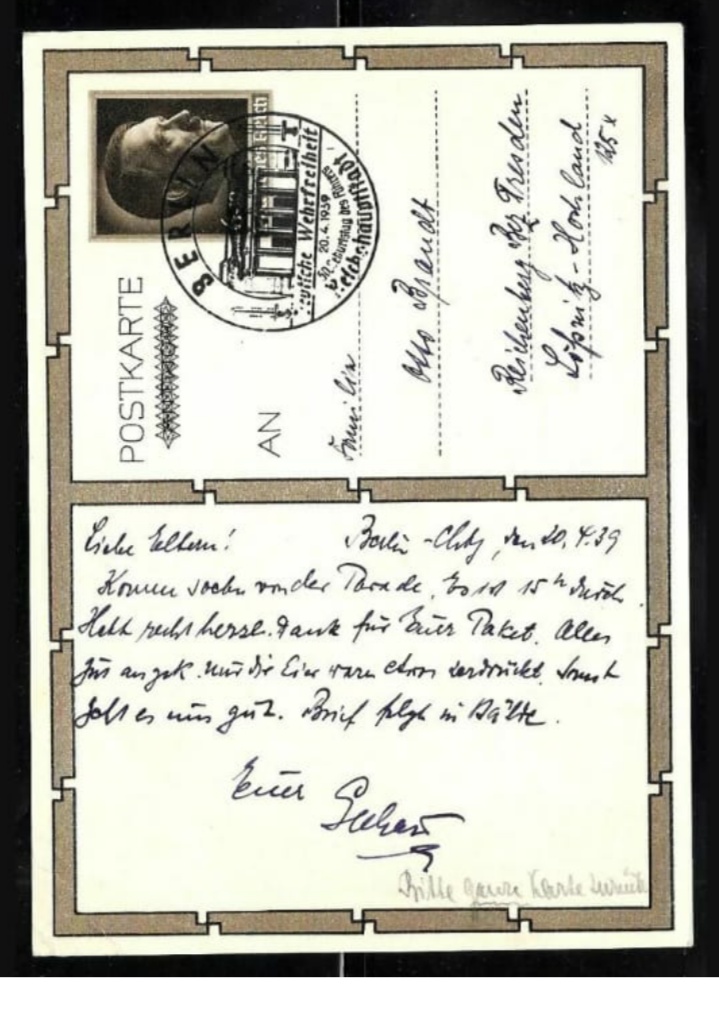 POSTKARTE
AN
BERLIN
20.4.1939
Familie
Otto Brandt
Reichenberg Bz Dresden
Lößnitz-Hochland
125 x
Liebe Eltern! Berlin-Chbg, den 20.4.39
Komen soeben von der Parade. Es ist 15 h durch.
Habt recht herzl. Dank für Euer Paket. Alles
gut angek. nur die Eier waren etwas zerdrückt. Sonst
geht es uns gut. Brief folgt in Bälde.
Euer
Bitte ganze Karte zurück